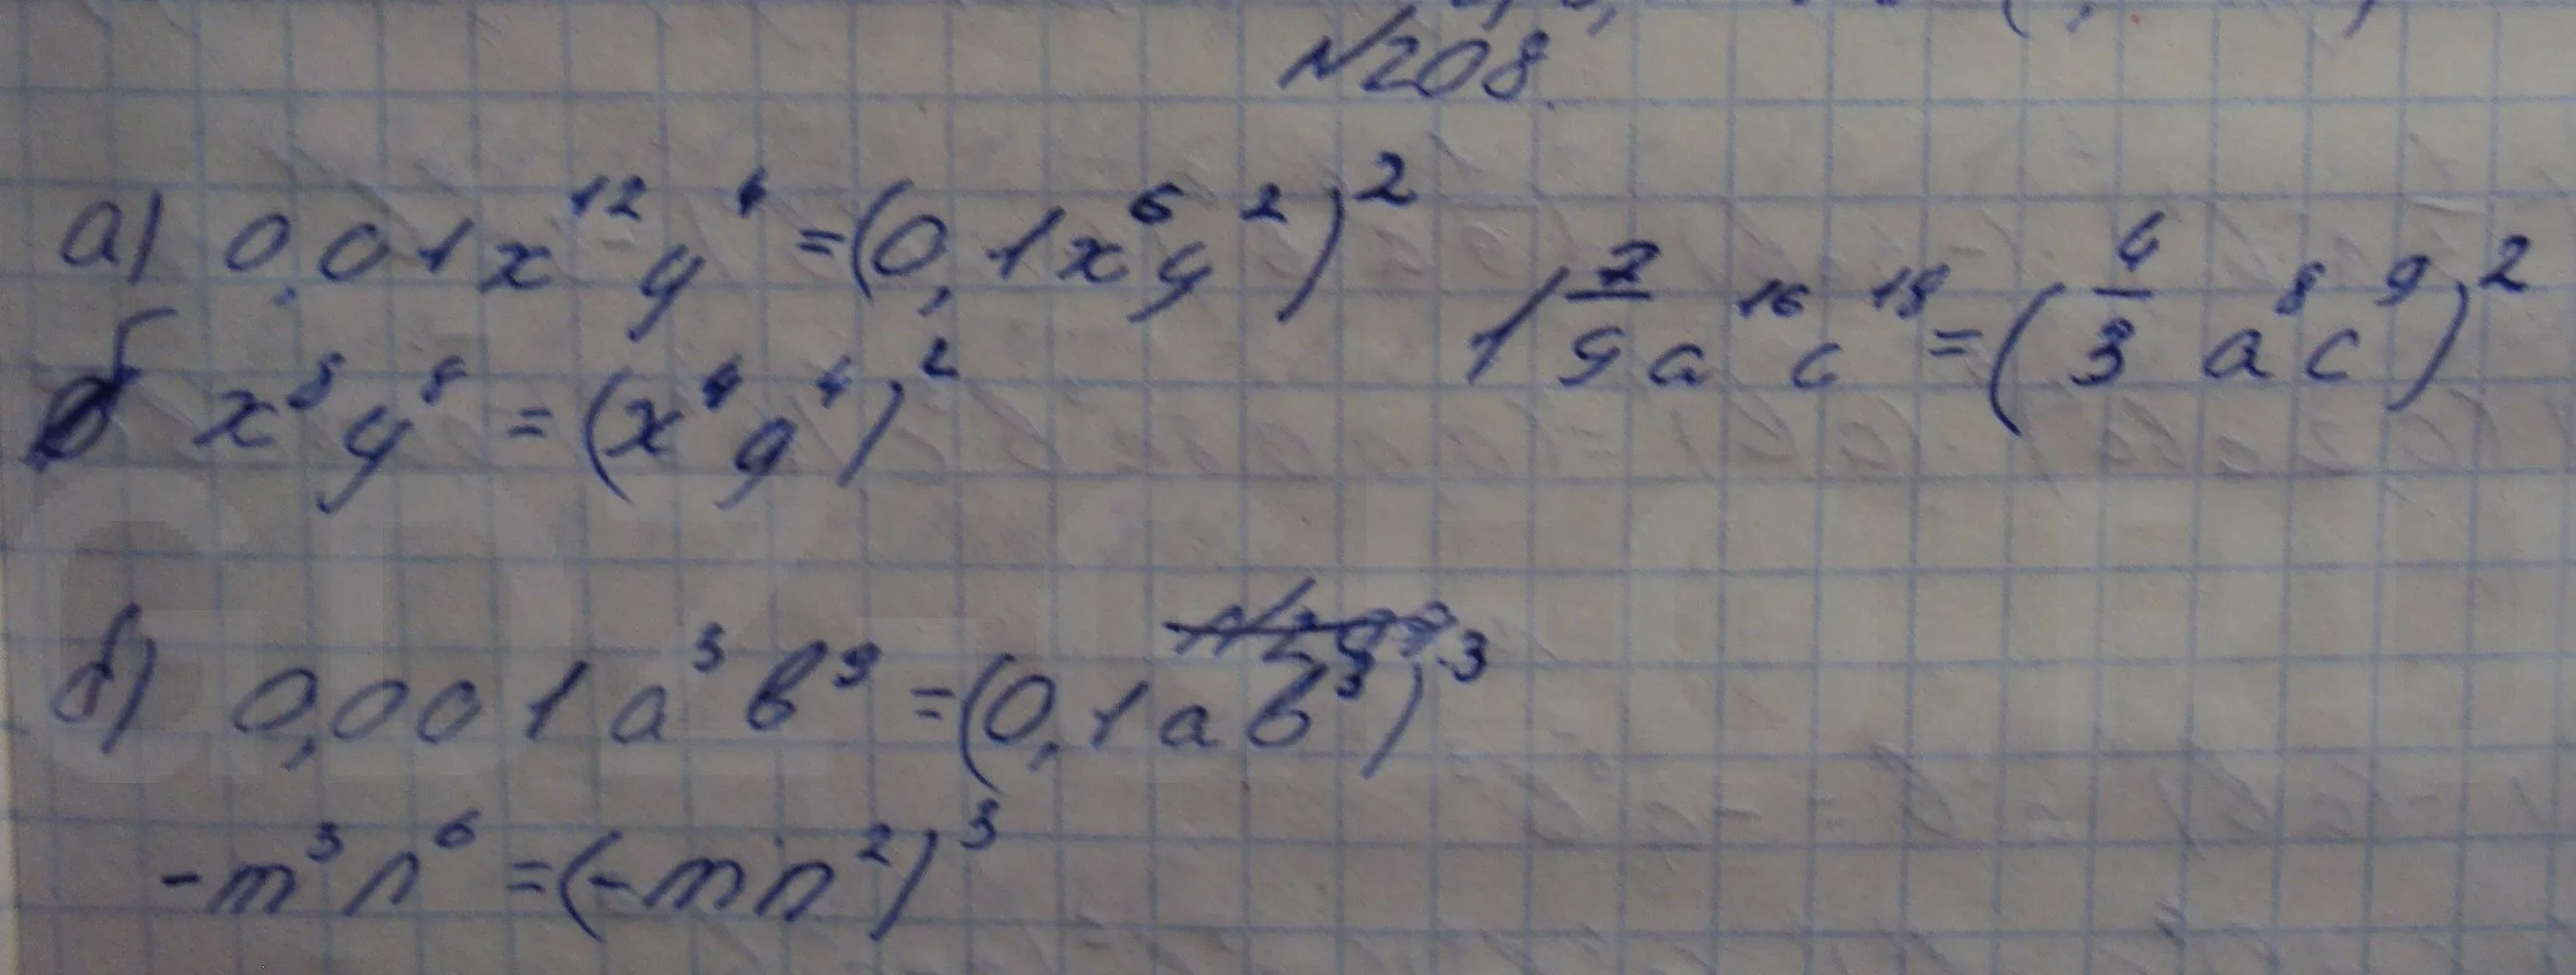 №208.
а) 0,01x¹²y⁴ = (0,1x⁶y²)²
1 7/9 a¹⁶c¹⁸ = (4/3 a⁸c⁹)²
б x⁸y⁸ = (x⁴y⁴)²
б) 0,001a³b⁹ = (0,1ab³)³
-m³n⁶ = (-mn²)³